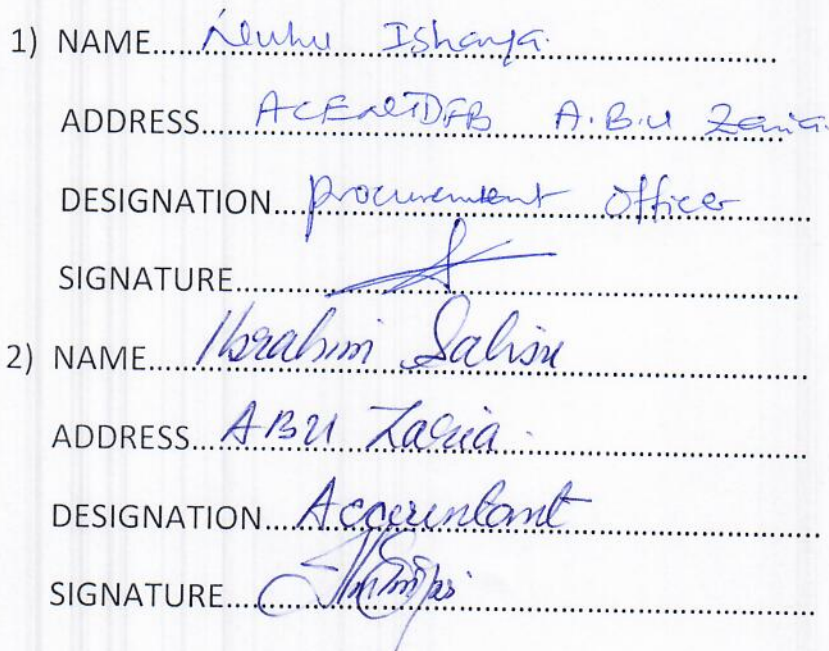 1) NAME.....Nuhu Ishaya.
ADDRESS.....ACENTDFB A.B.U Zaria.
DESIGNATION.....procurement officer
SIGNATURE.....
2) NAME.....Ibrahim Salisu
ADDRESS...ABU Zaria.
DESIGNATION...Accountant
SIGNATURE....